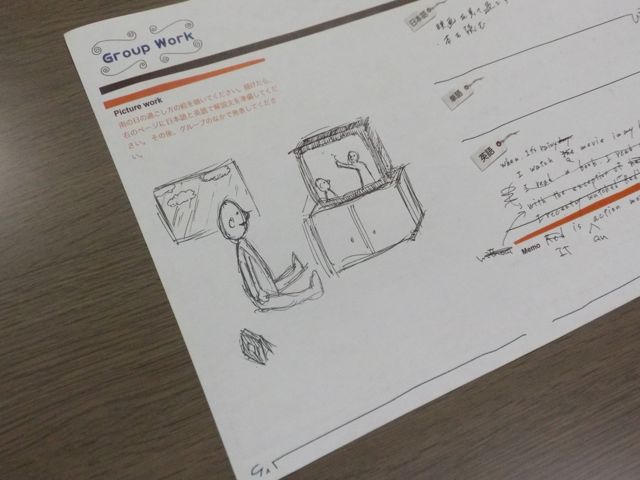 Group Work
Picture work
雨の日の過ごし方の絵を描いてください。描けたら、
右のページに日本語と英語で解説文を準備してくだ
さい。その後、グループのなかで発表してくださ
い。
日本語
映画を見て過ごす
・本を読む
単語
英語
when It's
I watch the movie in my
I read a book I read
with the exception of
I recently watched
is action
IT an
Memo